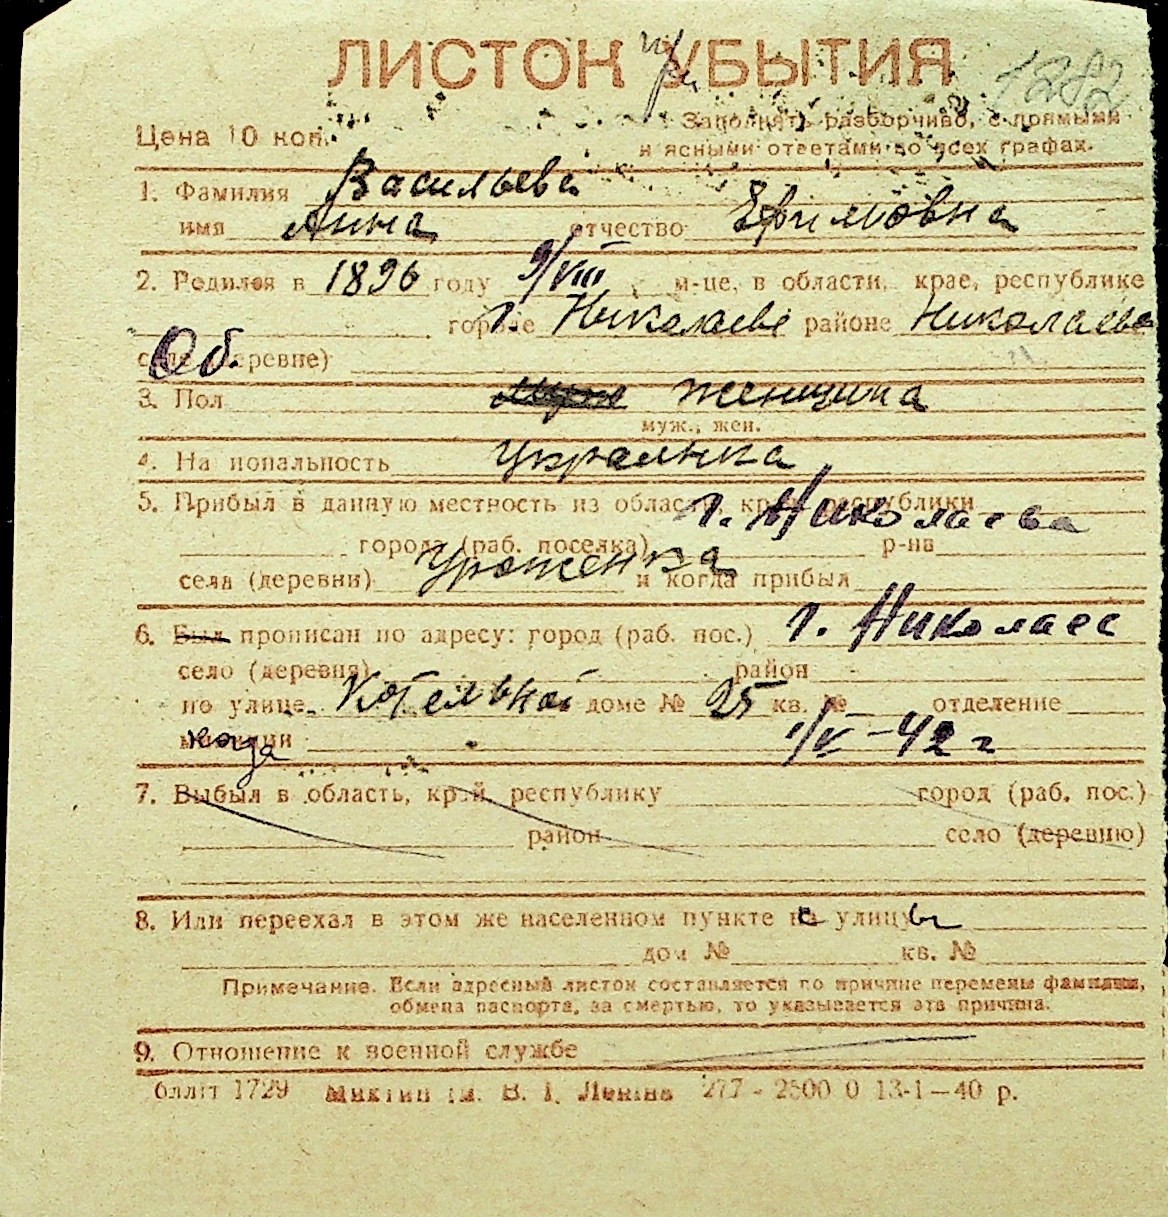 ЛИСТОК УБЫТИЯ
при
1282
Цена 10 коп.
Заполнять разборчиво, с прямыми
и ясными ответами во всех графах.
1. Фамилия Васильева
имя Анна отчество Ефимовна
2. Родился в 1896 году 9/VIII м-це, в области, крае, республике
городе г. Николаеве районе Николаева
Об. селе (деревне)
3. Пол женщина
муж., жен.
4. На иональность украинка
5. Прибыл в данную местность из области, края, республики г. Николаева
города (раб. поселка) р-на
села (деревни) Уроженка и когда прибыл
6. Был прописан по адресу: город (раб. пос.) г. Николаев
село (деревня) район
по улице Котельной доме № 25 кв. № отделение
милиции когда 1/V-42 г
7. Выбыл в область, край, республику город (раб. пос.)
район село (деревню)
8. Или переехал в этом же населенном пункте с улицы
дом № кв. №
Примечание. Если адресный листок составляется по причине перемены фамилии,
обмена паспорта, за смертью, то указывается эта причина.
9. Отношение к военной службе
1729 ім. В. І. Леніна 277 - 2500 0 13-1—40 р.